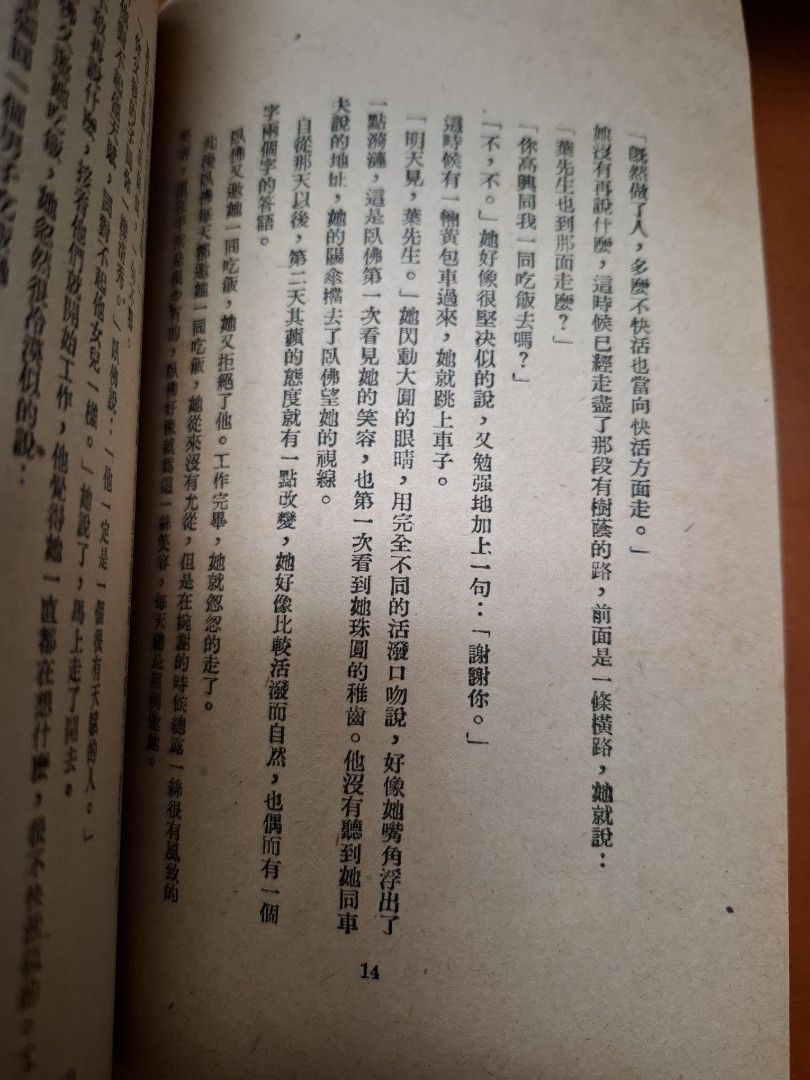 「既然做了人，多麼不快活也當向快活方面走。」
她沒有再說什麼，這時候已經走盡了那段有樹蔭的路，前面是一條橫路，她就說：
「葉先生也到那面走麼？」
「你高興同我一同吃飯去嗎？」
「不，不。」她好像很堅决似的說，又勉强地加上一句：「謝謝你。」
這時候有一輛黃包車過來，她就跳上車子。
「明天見，葉先生。」她閃動大圓的眼睛，用完全不同的活潑口吻說，好像她嘴角浮出了
一點漪漣，這是臥佛第一次看見她的笑容，也第一次看到她珠圓的稚齒。他沒有聽到她同車
夫說的地址，她的陽傘擋去了臥佛望她的視線。
自從那天以後，第二天其蘋的態度就有一點改變，她好像比較活潑而自然，也偶而有一個
字兩個字的答語。
臥佛又邀她一同吃飯，她又拒絕了他。工作完畢，她就忽忽的走了。
此後臥佛每天都邀她一同吃飯，她從來沒有允從，但是在婉謝的時候總露一絲很有風致的
臥佛好像就為這一絲笑容，每天總是照例邀她。
14
臥佛說：「他一定是一個後有天賦的人。」
對不起他女兒一樣。」她說了，馬上走了開去。
再說什麼，接着他們就開始工作，他覺得她一直都在想什麼，
吃飯，她忽然很冷漠似的說：